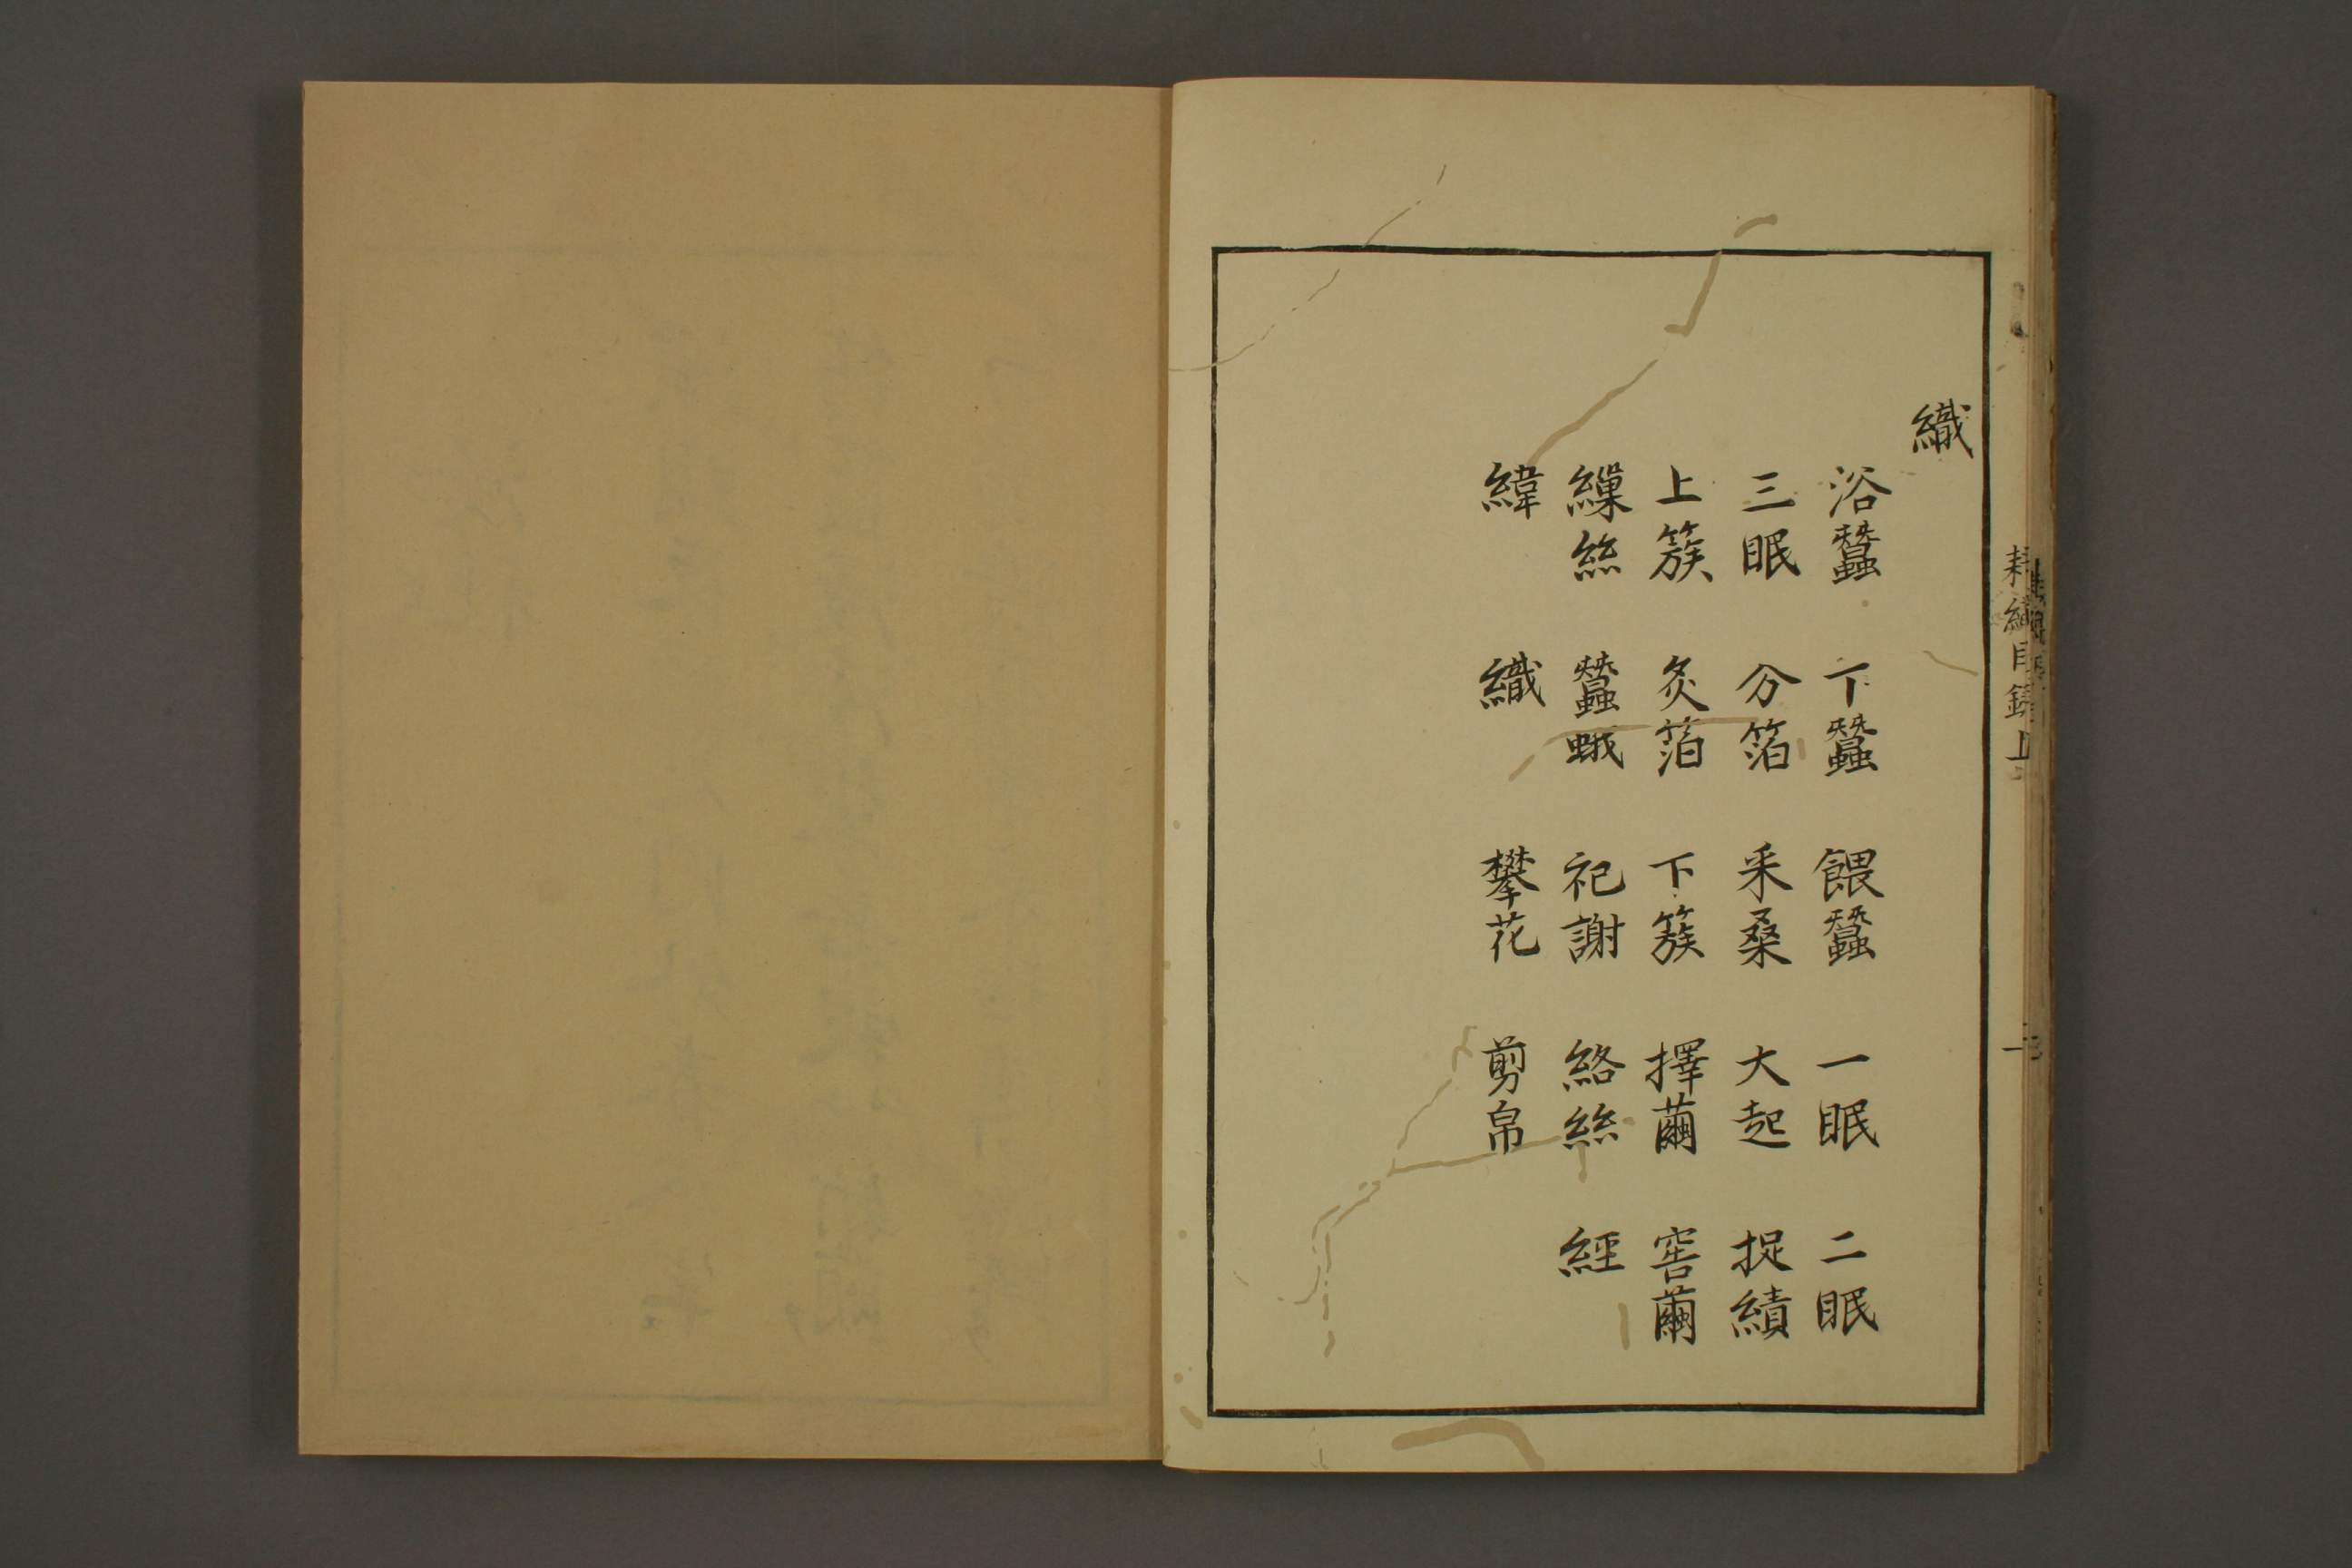 織
浴蠶 下蠶 餵蠶 一眠 二眠
三眠 分箔 采桑 大起 捉績
上簇 炙箔 下簇 擇繭 窖繭
繅絲 蠶蛾 祀謝 絡絲 經
緯 織 攀花 剪帛